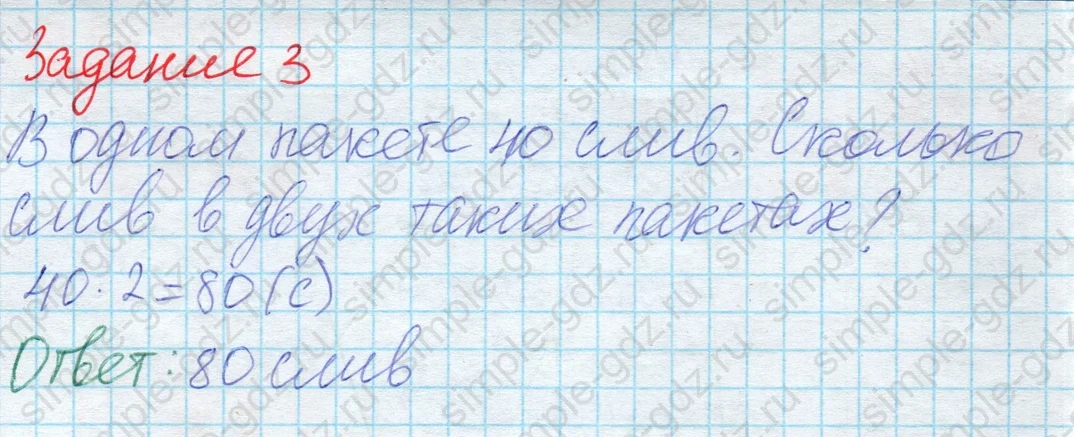 Задание 3
В одном пакете 40 слив. Сколько
слив в двух таких пакетах?
40 · 2 = 80 (с)
Ответ: 80 слив
simple-gdz.ru